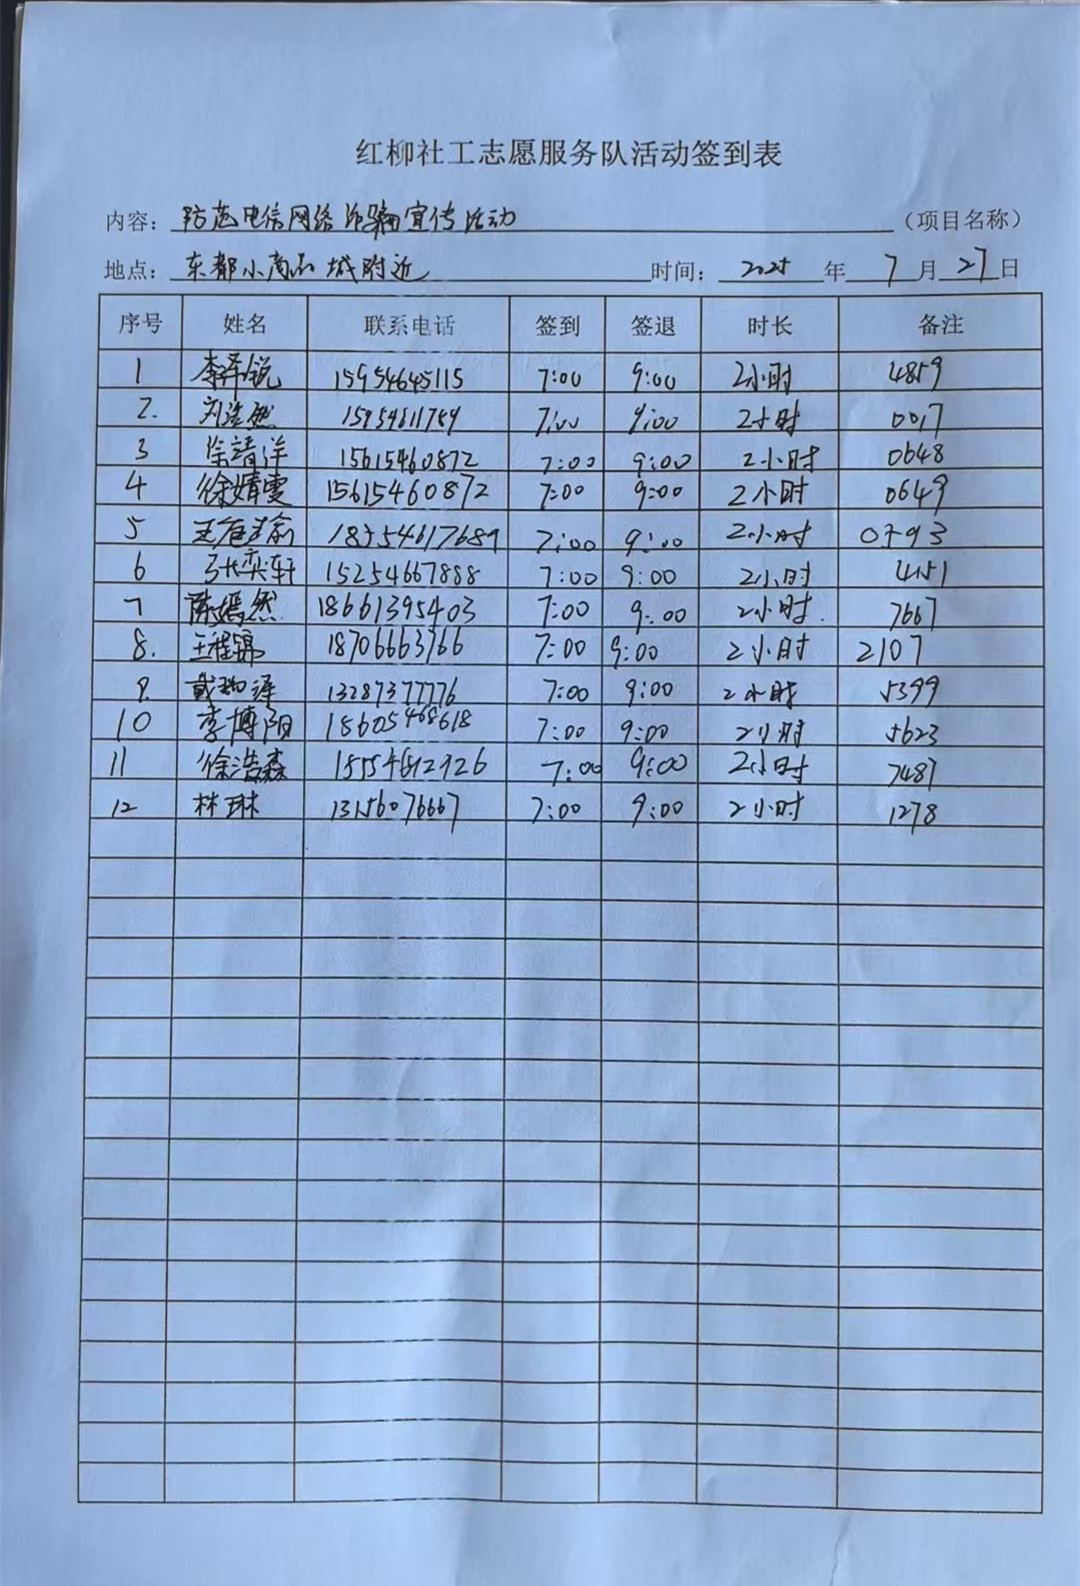 红柳社工志愿服务队活动签到表
内容：防范电信网络诈骗宣传活动（项目名称）
地点：东都小商品城附近 时间：2025年7月27日
序号 姓名 联系电话 签到 签退 时长 备注
1 李泽锐 15954645115 7:00 9:00 2小时 4859
2. 刘浩然 15954611759 7:00 9:00 2小时 0017
3 徐靖洋 15615460872 7:00 9:00 2小时 0648
4 徐婧雯 15615460872 7:00 9:00 2小时 0649
5 18554617689 7:00 9:00 2小时 0793
6 张奕轩 15254667888 7:00 9:00 2小时 4151
7 陈嫣然 18661395403 7:00 9:00 2小时. 7667
8. 王程锦 18706663766 7:00 9:00 2小时 2107
9. 13287377776 7:00 9:00 2小时 5399
10 李博阳 15605468618 7:00 9:00 2小时 5623
11 徐浩森 15554612926 7:00 9:00 2小时 7487
12 林琳 13156076667 7:00 9:00 2小时 1278